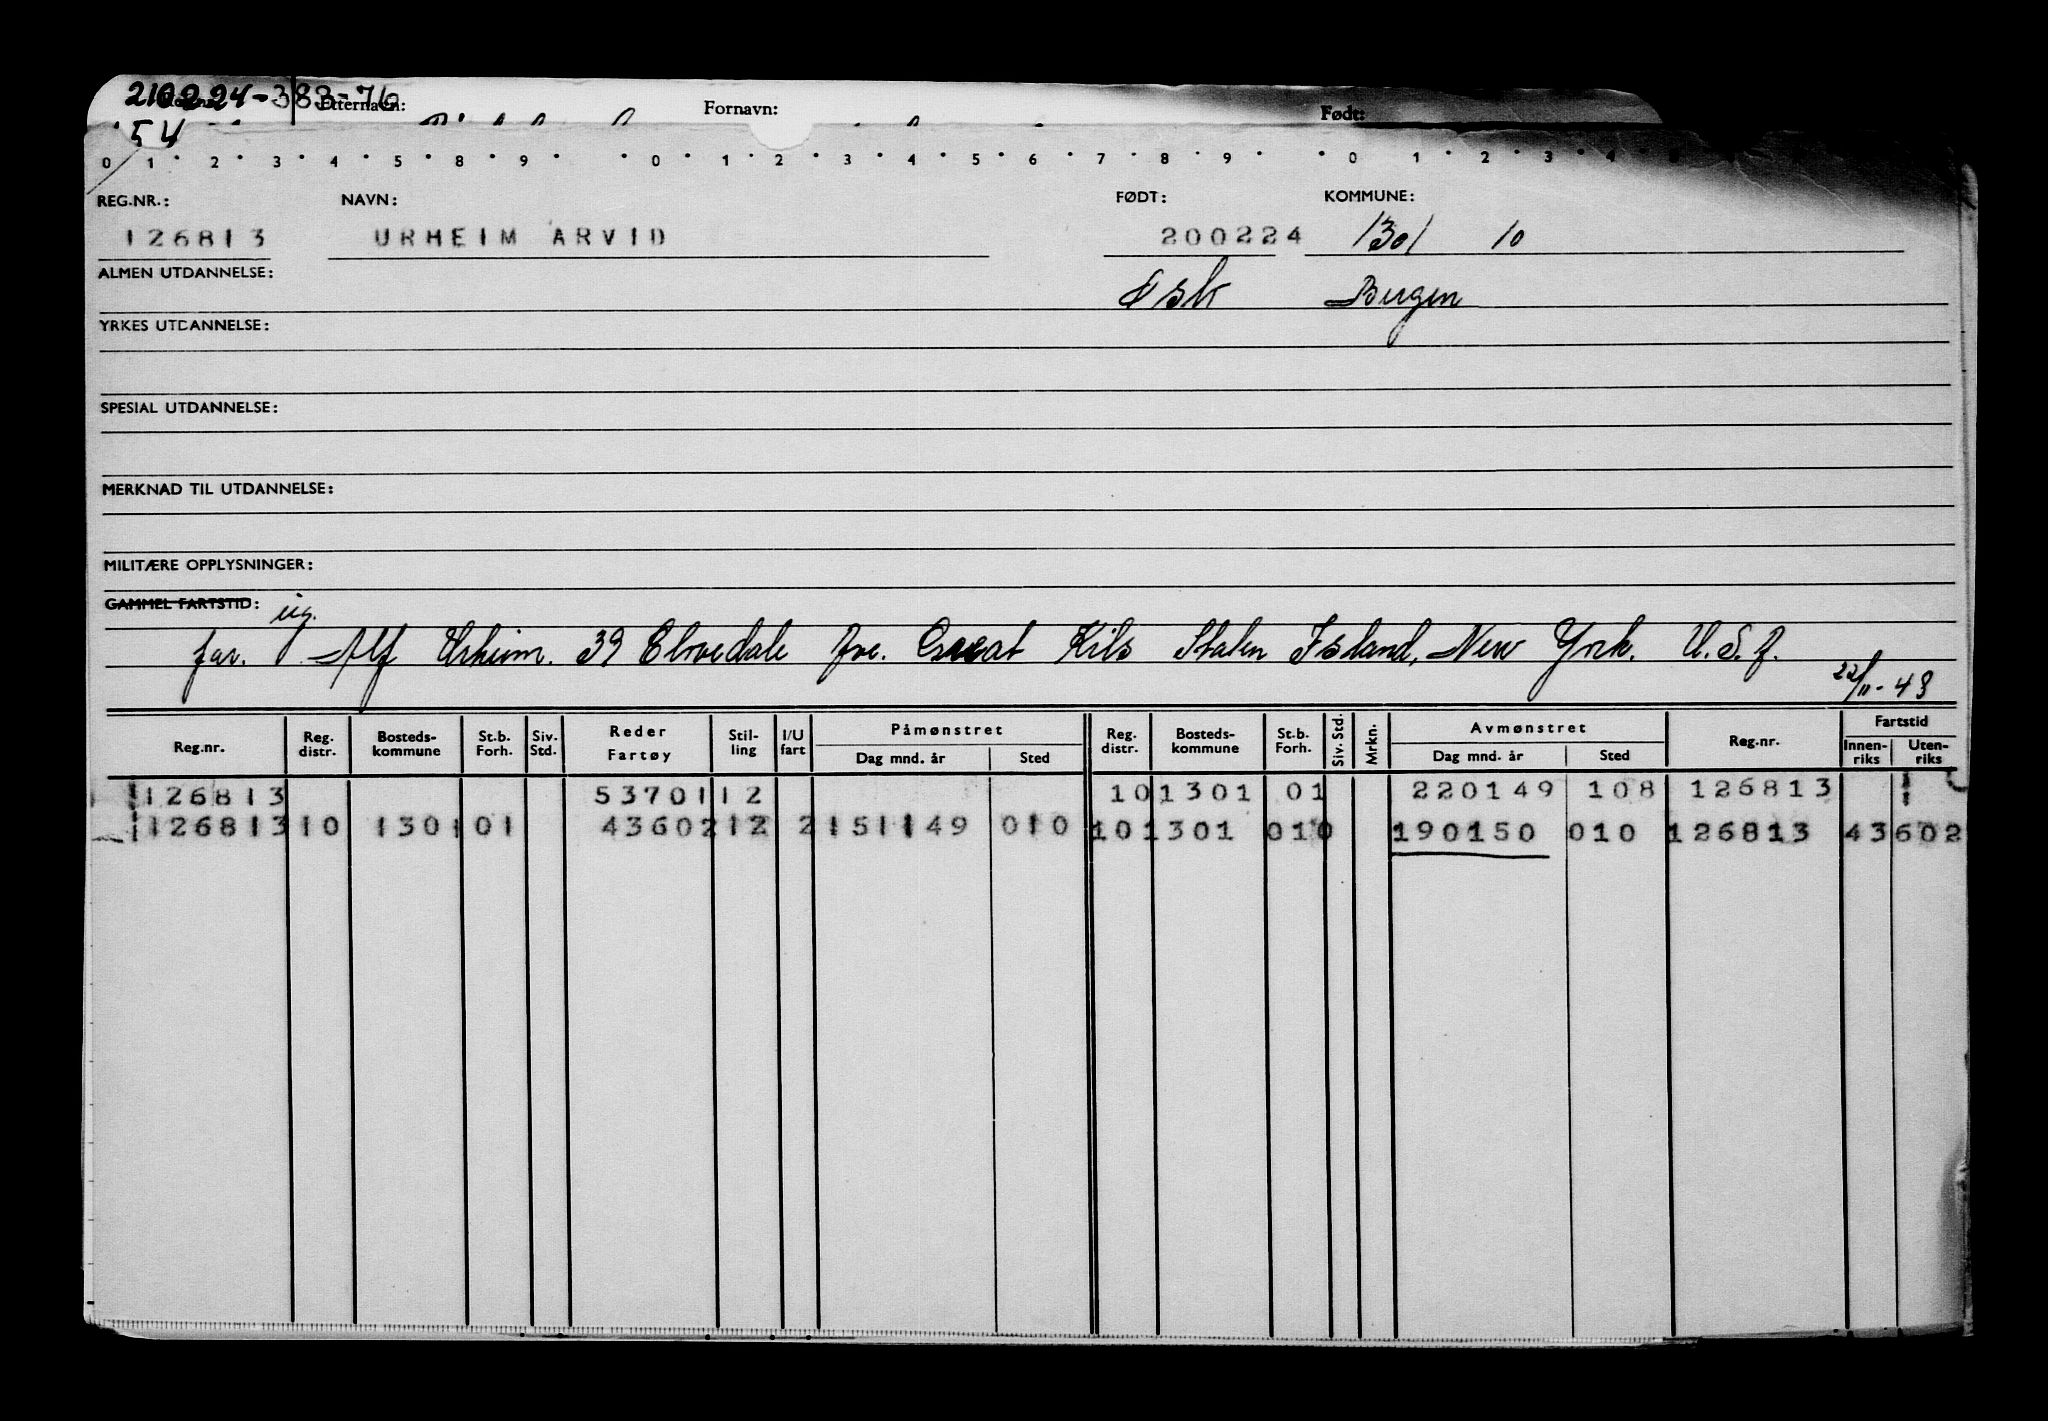 210224-383-76
Etternavn: Fornavn: Født:
54
0 1 2 3 4 5 8 9 0 1 2 3 4 5 6 7 8 9 0 1 2 3 4
REG.NR.: NAVN: FØDT: KOMMUNE:
126813 URHEIM ARVID 200224 1301 10
ALMEN UTDANNELSE: Bergen
YRKES UTDANNELSE:
SPESIAL UTDANNELSE:
MERKNAD TIL UTDANNELSE:
MILITÆRE OPPLYSNINGER:
GAMMEL FARTSTID: ug.
far. Alf Urheim. 39 Elmedale Ave. Great Kils Staten Island, New York. U.S.A.
22/11-43
Reg.nr. Reg. distr. Bosteds-kommune St.b. Forh. Siv. Std. Reder Fartøy Stil-ling I/U fart Påmønstret Dag mnd. år Sted Reg. distr. Bosteds-kommune St.b. Forh. Siv. Std. Mrkn. Avmønstret Dag mnd. år Sted Reg.nr. Fartstid Innen-riks Uten-riks
126813 53701 12 10 1301 01 220149 108 126813
126813 10 1301 01 43602 12 2 151149 010 10 1301 010 190150 010 126813 43602